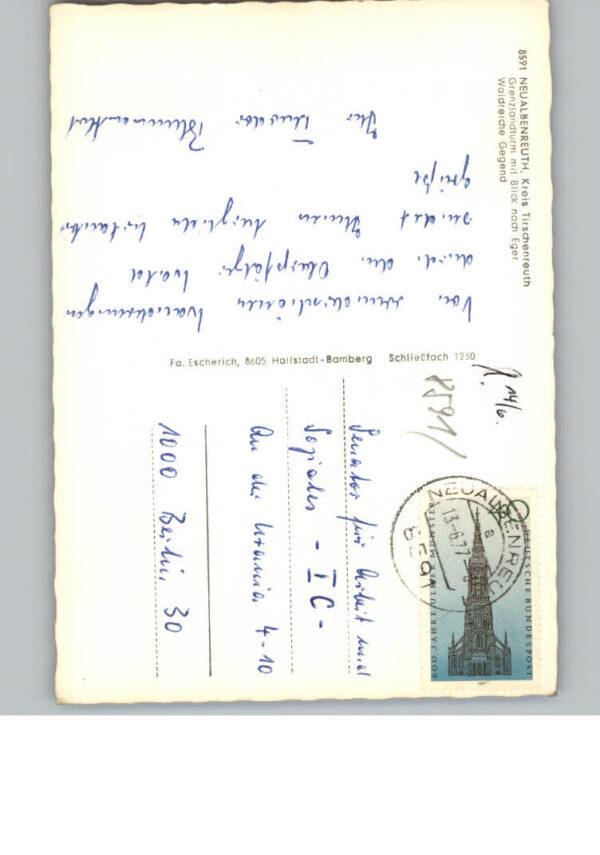 8591 NEUALBENREUTH, Kreis Tirschenreuth
Grenzlandturm mit Blick nach Eger
Waldreiche Gegend
Von wunderschönen Wanderungen
durch die Oberpfälzer
sendet Ihnen
Grüße
Ihr
Fa. Escherich, 8605 Hallstadt-Bamberg Schließfach 1250
14/6.
8591/
NEUALBENREUTH
a
13.-6.77
8591
40
DEUTSCHE BUNDESPOST
600 JAHRE ULMER MÜNSTER
Senator für Arbeit und
Soziales - IC -
An der Urania 4-10
1000 Berlin 30